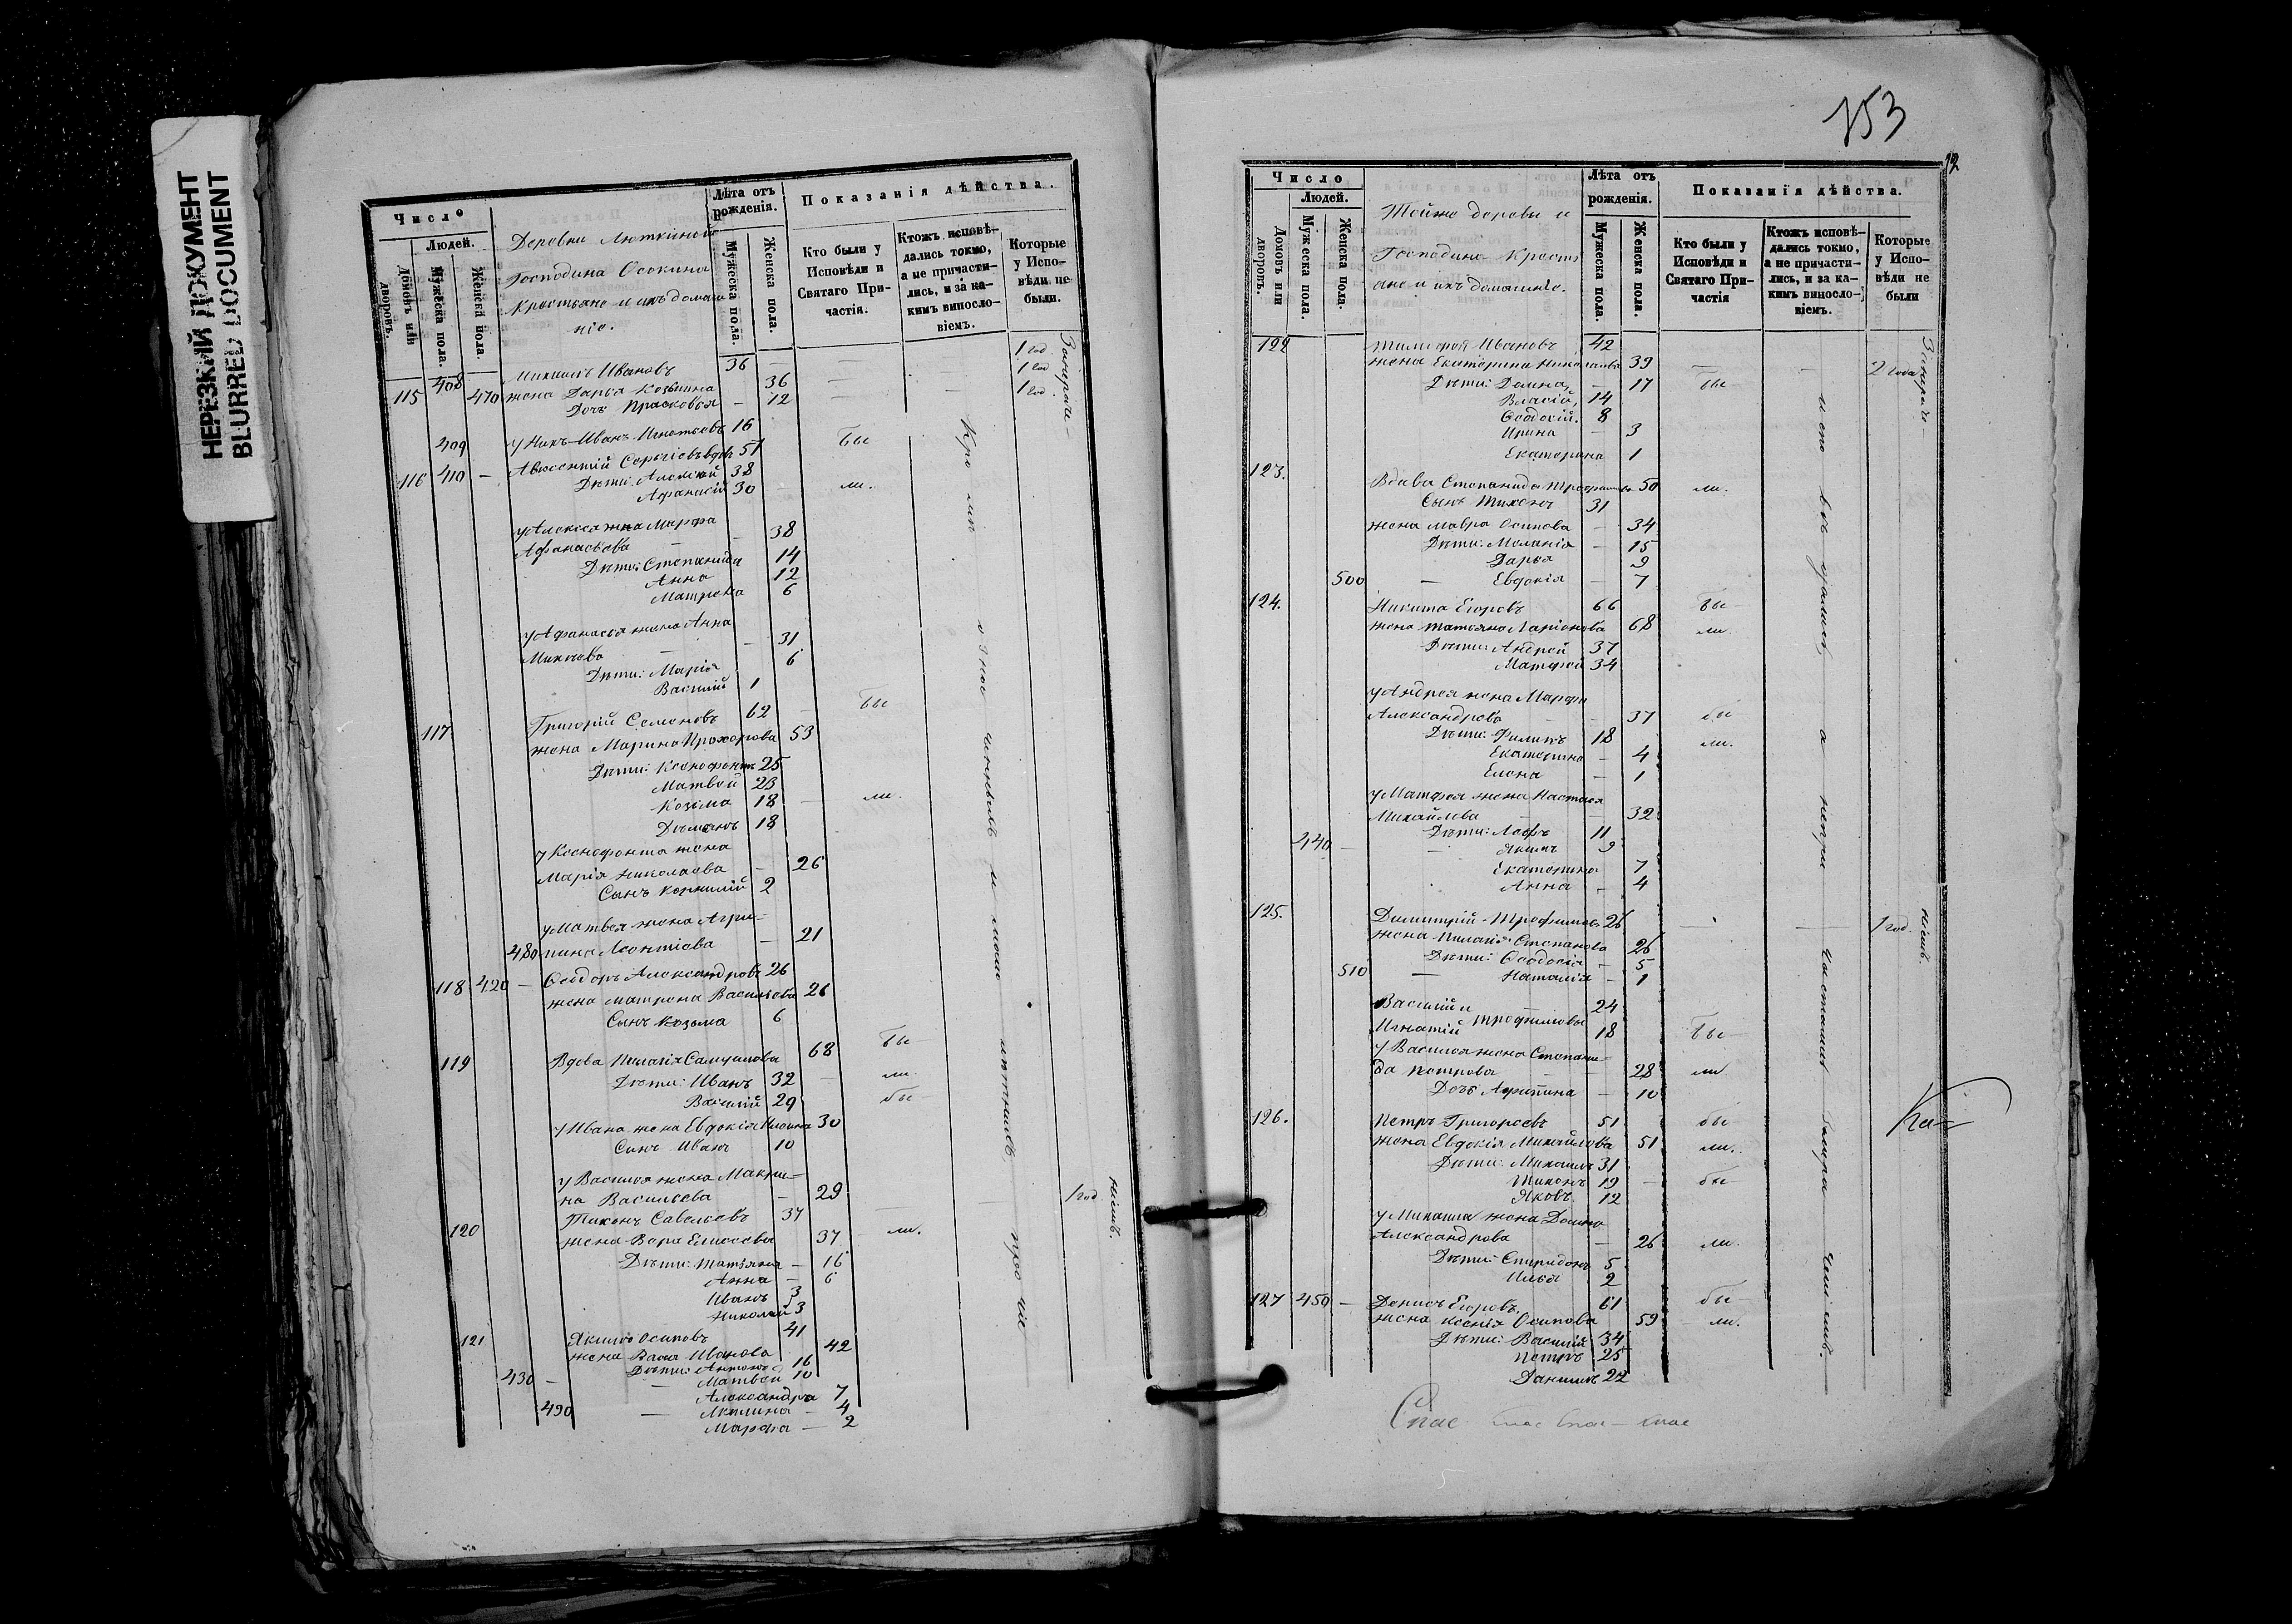 НЕРЕЗКИЙ ДОКУМЕНТ
BLURRED DOCUMENT
Число
Лѣта отъ рожденія.
Показанія дѣйства.
Людей.
Домовъ или дворовъ.
Мужеска пола.
Женска пола.
Деревни Люткиной
Господина Осокина
Крестьяне и ихъ домаш
ніе.
Мужеска пола.
Женска пола.
Кто были у Исповѣди и Святаго Причастія.
Ктожъ исповѣдались токмо, а не причастились, и за какимъ винословіемъ.
Которые у Исповѣди не были.
115 408 Михаилъ Ивановъ 36 — 1 год
470 жена Дарья Козьмина 36 — 1 год
Дочь Прасковья — 12 — 1 год
409 у Нихъ Иванъ Игнатьевъ 16 бы
116 410 — Авксентій Сергіевъ вдов 57
Дѣти: Алексей 38
Афанасій 30 — ли.
у Алексея жена Марфа
Афанасьева — — 38
Дѣти: Степанида 14
Анна 12
Матрена 6
у Афанасья жена Анна
— — 31
Дѣти: Марія 6
Василій 1
117 Григорій Семеновъ 62 — бы
жена Марина Прохорова 53
Дѣти: Ксенофонтъ 25
Матвей 23
Козьма 18 — ли.
Дѣмьянъ 18
у Ксенофонта жена
Марія Николаева — 26
Сынъ Корнилій 2
у Матвея жена Агри-
480 пина Леонтіева — 21
118 420 — Ѳеодоръ Александровъ 26
жена Матрена Васильева 26
Сынъ Козьма 6
119 Вдова Пелагія Самуилова 68 бы
Дѣти: Иванъ 32 — ли
Василій 29 бы
у Ивана жена Евдокія 30
Сынъ Иванъ 10
у Василья жена Макри-
на Васильева — 29
120 Тихонъ Савельевъ 37 — 1 год
жена Вера Елисеева 37 ли.
Дѣти: Татьяна — 16
Анна — 6
Иванъ 3
Николай 3
121 Якимъ Осиповъ 41
жена Васса Иванова 42
Дѣти: Антонъ 16
430 — — Матвей 10
Александра 7
490 — Акилина — 4
Марфа — 2
153
12
Число
Лѣта отъ рожденія.
Показанія дѣйства.
Людей.
Домовъ или дворовъ.
Мужеска пола.
Женска пола.
Тойже деревни
Господина Крестья
ане и ихъ домашніе.
Мужеска пола.
Женска пола.
Кто были у Исповѣди и Святаго Причастія
Ктожъ исповѣдались токмо, а не причастились, и за какимъ винословіемъ.
Которые у Исповѣди не были
122 Тимофей Ивановъ 42
жена Екатерина Николаева 39 — — 2 года
Дѣти: Домна, — 17 бы
Власій, 14
Ѳеодосій. 8
Ирина — 3
Екатерина 1
123. Вдова Степанида Трофимова 50 ли.
Сынъ Тихонъ 31
жена Мавра Осипова — 34
Дѣти: Меланія — 15
Дарья 9
500 — Евдокія — 7
124. Никита Егоровъ 66 бы
жена Татьяна Ларіонова 68 ли
Дѣти: Андрей 37
Матфей 34
у Андрея жена Марфа
Александрова — — 37 бы
Дѣти: Филипъ 18 ли.
Екатерина — 4
Елена — 1
у Матфея жена Настасья
Михайлова — — 32
Дѣти: Лавръ 11
440 — — Якимъ 9
Екатерина 7
Анна — 4
125. Димитрій Трофимовъ 26 — — 1 год.
жена Пелагія Степанова 26
Дѣти: Ѳеодосія — 5
510 — Наталія — 1
Василій и — 24
Игнатій Трофимовы 18 бы
у Василья жена Степани-
да Петрова — — 28 ли
Дочь Агрипина — 10
126. Петръ Григорьевъ 51 бы
жена Евдокія Михайлова 51 ли.
Дѣти: Михаилъ 31
Тихонъ 19 — бы
Яковъ 12
у Михаила жена Домна
Александрова — 26 ли.
Дѣти: Спиридонъ 5
Илья 2
127 450 — Денисъ Егоровъ 61 бы
жена Ксенія Осипова 59 ли.
Дѣти: Василій 34
Петръ 25
Данилъ 22
Спас